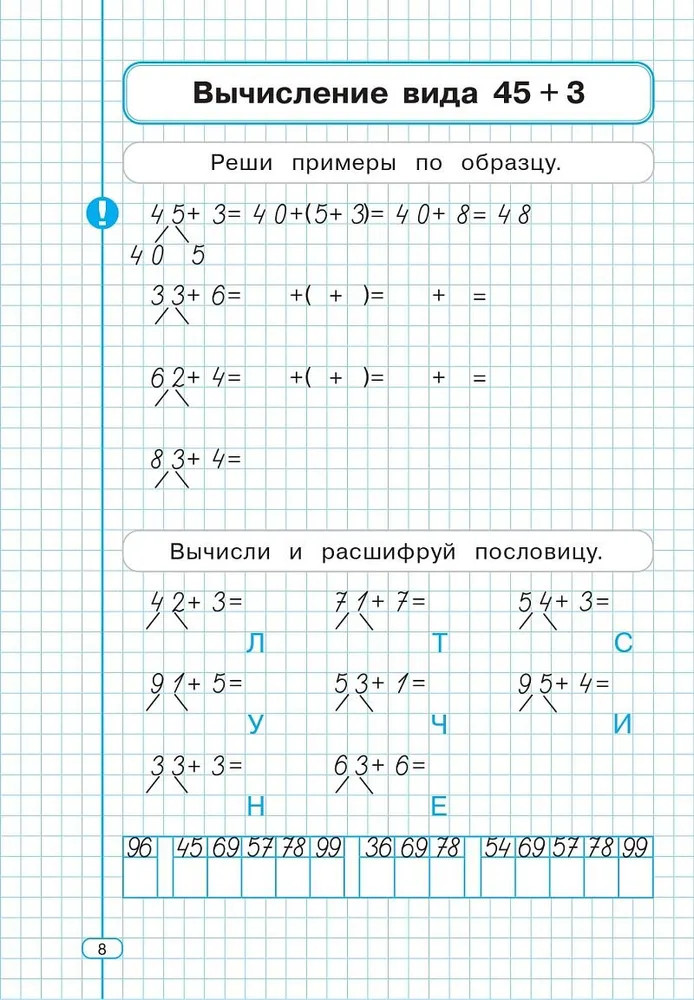 Вычисление вида 45 + 3
Реши примеры по образцу.
! 45+ 3= 40+(5+ 3)= 40+ 8= 48
40 5
33+ 6= +( + )= + =
62+ 4= +( + )= + =
83+ 4=
Вычисли и расшифруй пословицу.
42+ 3= 71+ 7= 54+ 3=
Л Т С
91+ 5= 53+ 1= 95+ 4=
У Ч И
33+ 3= 63+ 6=
Н Е
96 45 69 57 78 99 36 69 78 54 69 57 78 99
8